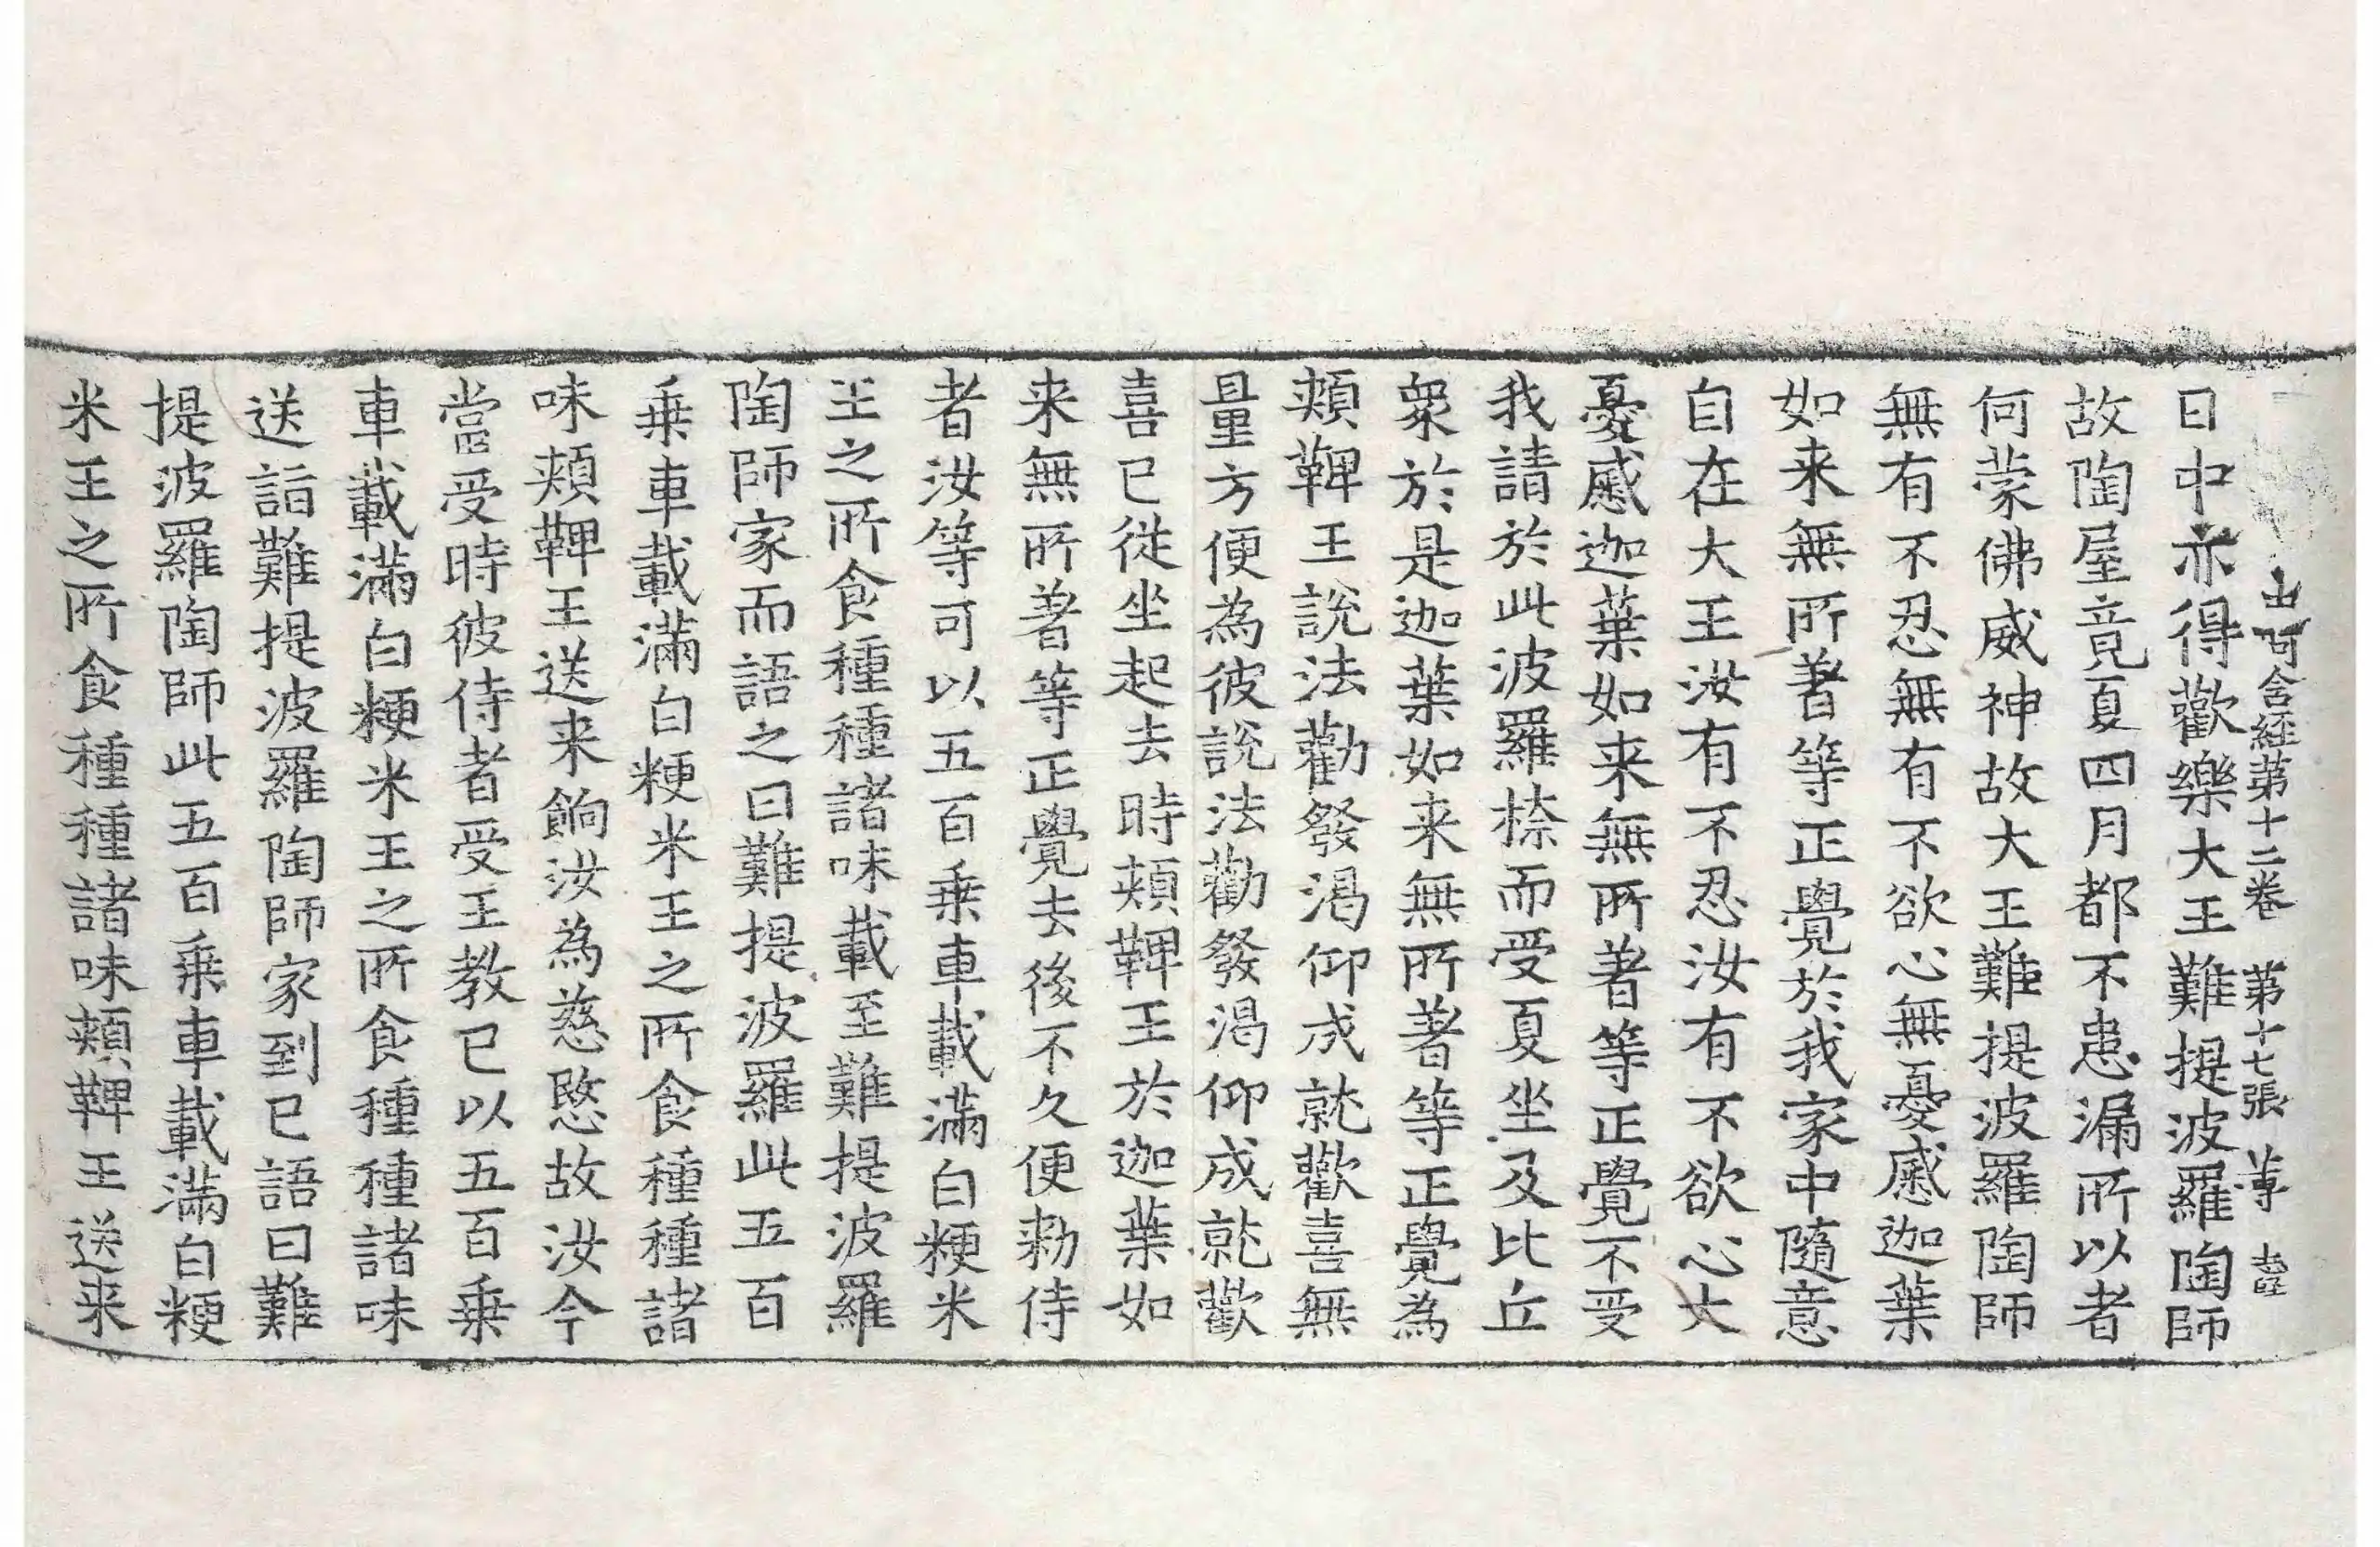 中阿含経第十二卷 第十七張 薄
日中亦得歡樂大王難提波羅陶師
故陶屋竟夏四月都不患漏所以者
何蒙佛威神故大王難提波羅陶師
無有不忍無有不欲心無憂慼迦葉
如来無所著等正覺於我家中隨意
自在大王汝有不忍汝有不欲心大
憂慼迦葉如来無所著等正覺不受
我請於此波羅㮈而受夏坐及比丘
衆於是迦葉如来無所著等正覺為
頰鞞王說法勸發渴仰成就歡喜無
量方便為彼說法勸發渴仰成就歡
喜已從坐起去時頰鞞王於迦葉如
来無所著等正覺去後不久便勑侍
者汝等可以五百乗車載滿白粳米
王之所食種種諸味載至難提波羅
陶師家而語之曰難提波羅此五百
乗車載滿白粳米王之所食種種諸
味頰鞞王送来餉汝為慈愍故汝今
當受時彼侍者受王教已以五百乗
車載滿白粳米王之所食種種諸味
送詣難提波羅陶師家到已語曰難
提波羅陶師此五百乗車載滿白粳
米王之所食種種諸味頰鞞王送来